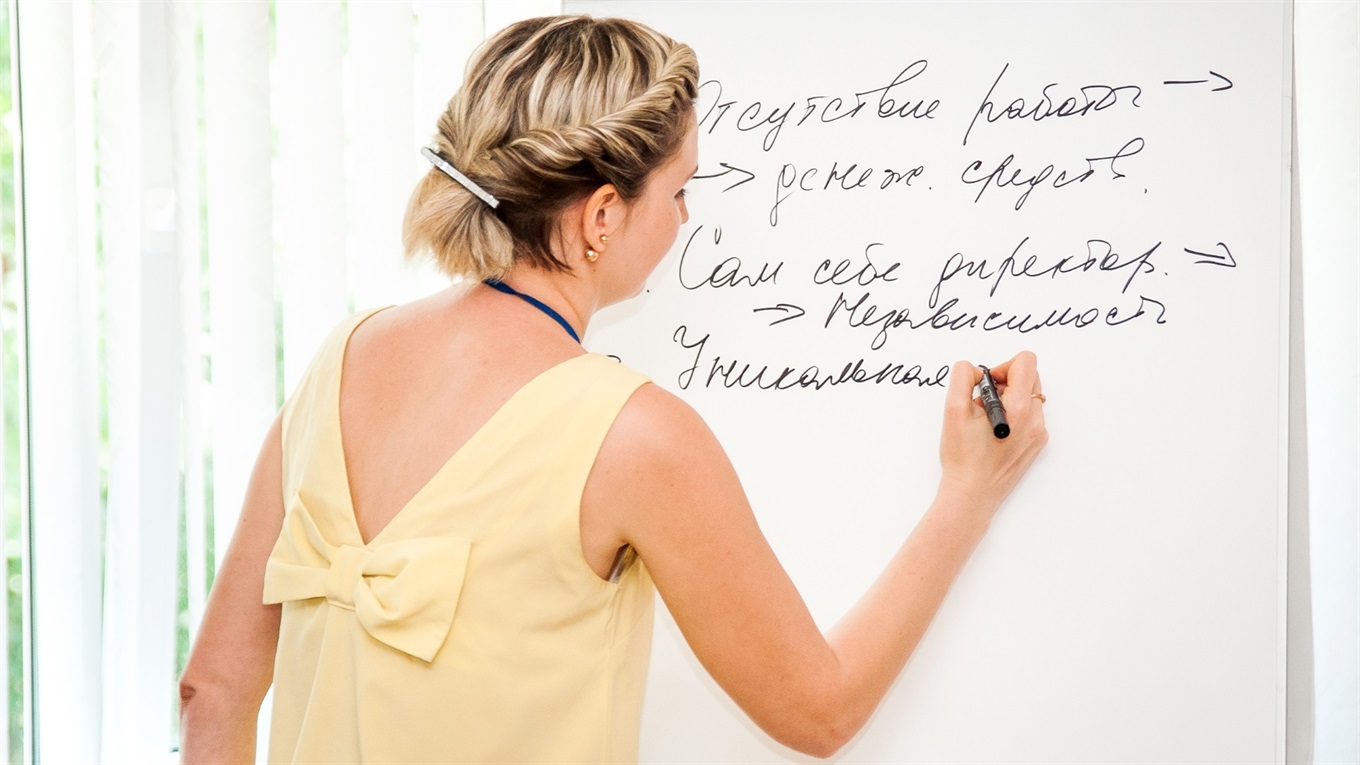 Отсутствие работы →
→ денеж. средств.
. Сам себе директор. →
→ Независимость
Уникальная